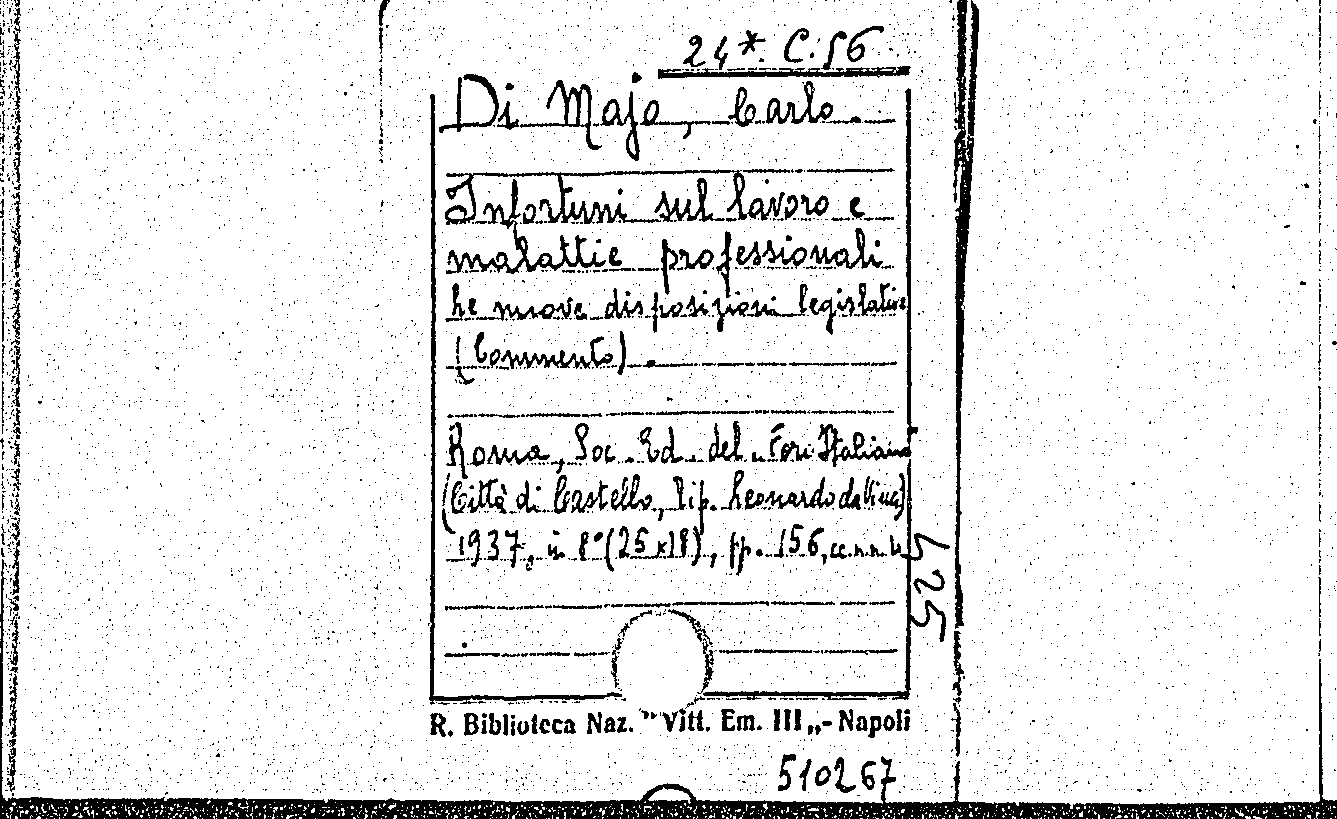 24*. C. 56
Di Majo, Carlo.
Infortuni sul lavoro e
malattie professionali
Le nuove disposizioni legislative
(Commento).
Roma, Soc. Ed. del "Foro Italiano
(Città di Castello, Tip. Leonardo da Vinci)
1937, in 8° (25x18), pp. 156, cc. n. n.
525
R. Biblioteca Naz. "Vitt. Em. III„- Napoli
510267